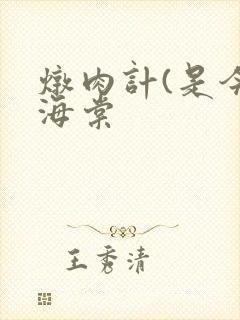 燉肉計(是今
海棠
王秀清